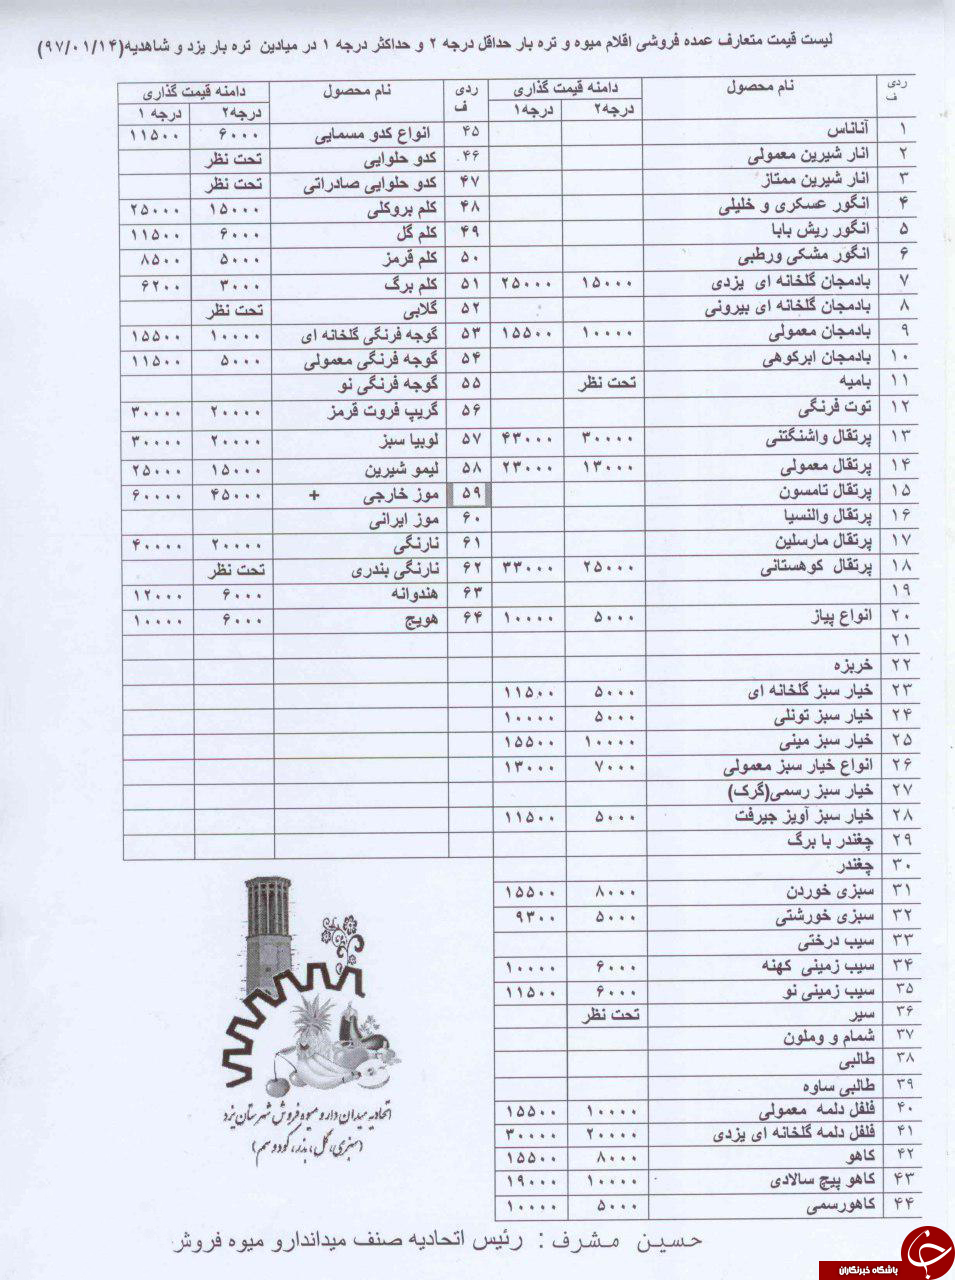 لیست قیمت متعارف عمده فروشی اقلام میوه و تره بار حداقل درجه ۲ و حداکثر درجه ۱ در میادین تره بار یزد و شاهدیه(۹۷/۰۱/۱۴)
ردیف نام محصول دامنه قیمت گذاری
درجه۲ درجه۱
۱ آناناس
۲ انار شیرین معمولی
۳ انار شیرین ممتاز
۴ انگور عسکری و خلیلی
۵ انگور ریش بابا
۶ انگور مشکی ورطبی
۷ بادمجان گلخانه ای یزدی ۱۵۰۰۰ ۲۵۰۰۰
۸ بادمجان گلخانه ای بیرونی
۹ بادمجان معمولی ۱۰۰۰۰ ۱۵۵۰۰
۱۰ بادمجان ابرکوهی
۱۱ بامیه تحت نظر
۱۲ توت فرنگی
۱۳ پرتقال واشنگتنی ۳۰۰۰۰ ۴۳۰۰۰
۱۴ پرتقال معمولی ۱۳۰۰۰ ۲۳۰۰۰
۱۵ پرتقال تامسون
۱۶ پرتقال والنسیا
۱۷ پرتقال مارسلین
۱۸ پرتقال کوهستانی ۲۵۰۰۰ ۳۳۰۰۰
۱۹
۲۰ انواع پیاز ۵۰۰۰ ۱۰۰۰۰
۲۱
۲۲ خربزه
۲۳ خیار سبز گلخانه ای ۵۰۰۰ ۱۱۵۰۰
۲۴ خیار سبز تونلی ۵۰۰۰ ۱۰۰۰۰
۲۵ خیار سبز مینی ۱۰۰۰۰ ۱۵۵۰۰
۲۶ انواع خیار سبز معمولی ۷۰۰۰ ۱۳۰۰۰
۲۷ خیار سبز رسمی(گرک)
۲۸ خیار سبز آویز جیرفت ۵۰۰۰ ۱۱۵۰۰
۲۹ چغندر با برگ
۳۰ چغندر
۳۱ سبزی خوردن ۸۰۰۰ ۱۵۵۰۰
۳۲ سبزی خورشتی ۵۰۰۰ ۹۳۰۰
۳۳ سیب درختی
۳۴ سیب زمینی کهنه ۶۰۰۰ ۱۰۰۰۰
۳۵ سیب زمینی نو ۶۰۰۰ ۱۱۵۰۰
۳۶ سیر تحت نظر
۳۷ شمام و وملون
۳۸ طالبی
۳۹ طالبی ساوه
۴۰ فلفل دلمه معمولی ۱۰۰۰۰ ۱۵۵۰۰
۴۱ فلفل دلمه گلخانه ای یزدی ۲۰۰۰۰ ۳۰۰۰۰
۴۲ کاهو ۸۰۰۰ ۱۵۵۰۰
۴۳ کاهو پیچ سالادی ۱۰۰۰۰ ۱۹۰۰۰
۴۴ کاهورسمی ۵۰۰۰ ۱۰۰۰۰
ردیف نام محصول دامنه قیمت گذاری
درجه۲ درجه ۱
۴۵ انواع کدو مسمایی ۶۰۰۰ ۱۱۵۰۰
۴۶ کدو حلوایی تحت نظر
۴۷ کدو حلوایی صادراتی تحت نظر
۴۸ کلم بروکلی ۱۵۰۰۰ ۲۵۰۰۰
۴۹ کلم گل ۶۰۰۰ ۱۱۵۰۰
۵۰ کلم قرمز ۵۰۰۰ ۸۵۰۰
۵۱ کلم برگ ۳۰۰۰ ۶۲۰۰
۵۲ گلابی تحت نظر
۵۳ گوجه فرنگی گلخانه ای ۱۰۰۰۰ ۱۵۵۰۰
۵۴ گوجه فرنگی معمولی ۵۰۰۰ ۱۱۵۰۰
۵۵ گوجه فرنگی نو
۵۶ گریپ فروت قرمز ۲۰۰۰۰ ۳۰۰۰۰
۵۷ لوبیا سبز ۲۰۰۰۰ ۳۰۰۰۰
۵۸ لیمو شیرین ۱۵۰۰۰ ۲۵۰۰۰
۵۹ موز خارجی + ۴۵۰۰۰ ۶۰۰۰۰
۶۰ موز ایرانی
۶۱ نارنگی ۲۰۰۰۰ ۴۰۰۰۰
۶۲ نارنگی بندری تحت نظر
۶۳ هندوانه ۶۰۰۰ ۱۲۰۰۰
۶۴ هویج ۶۰۰۰ ۱۰۰۰۰
اتحادیه میدان دار و میوه فروش شهرستان یزد
(سبزی، گل، بذر، کود و سم)
حسین مشرف : رئیس اتحادیه صنف میداندارو میوه فروش
باشگاه خبرنگاران